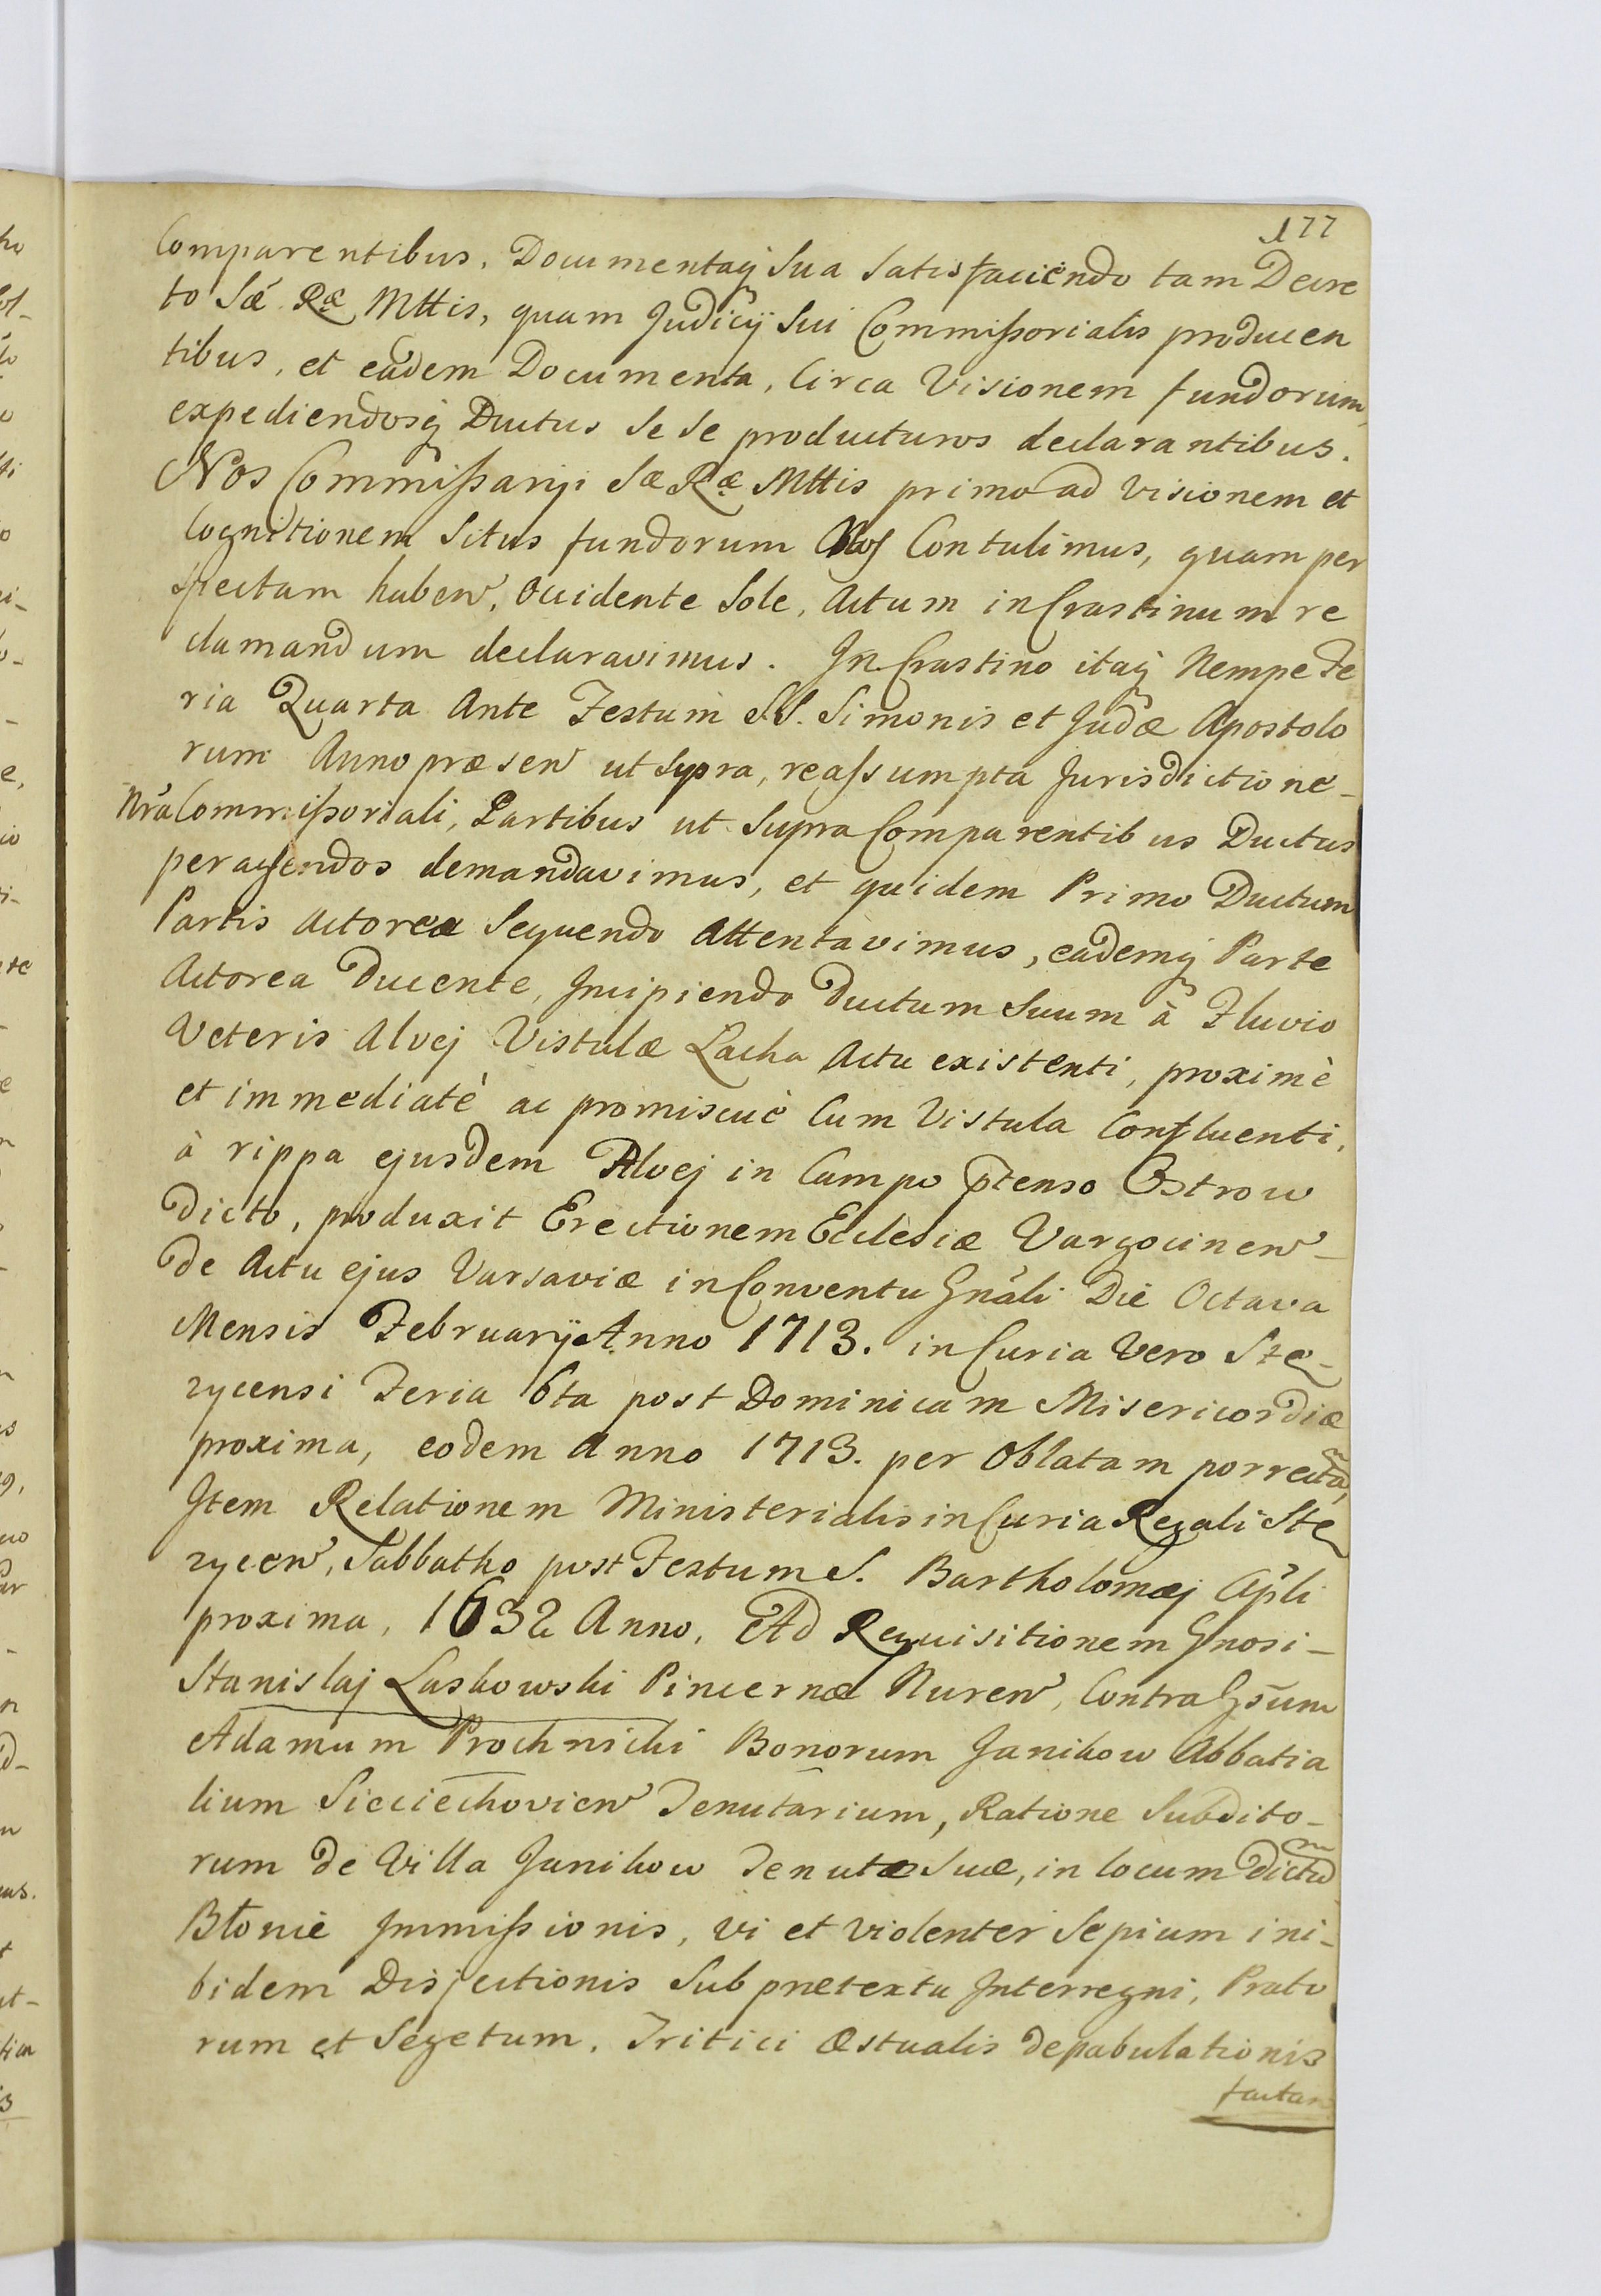 177
Comparentibus, Documentaq̃ Sua Satisfaciendo tam Decre
to Sæ Ræ Mttis, quam Judicÿ Sui Commissorialis producen
tibus, et eadem Documenta, Circa Visionem fundorum,
expediendosq̃ Ductus Se Se producturos declarantibus.
Nos Commissarÿ Sæ Ræ Mttis primo ad Visionem et
Cognitionem Situs fundorum Nos Contulimus, quam per
spectam haben, Occidente Sole, Actum in Crastinum re
clamandum declaravimus. In Crastino itaq̃ Nempe Fe
ria Quarta Ante Festum S.S. Simonis et Judæ Apostolo
rum Anno præsen ut Supra, reassumpta Jurisdictione
Nrã Commissoriali, Partibus ut Supra Comparentibus Ductus
peragendos demandavimus, et quidem Primo Ductum
Partis Actoreæ Sequendo Attentavimus, eademq̃ Parte
Actorea Ducente, Incipiendo Ductum Suum à Fluvio
Veteris Alvej Vistulæ Lacha Actu existenti, proximè
et immediatè ac promiscuè Cum Vistula Confluenti,
à rippa ejusdem Alvej in Campo ptenso Ostrow
Dicto, produxit Erectionem Ecclesiæ Vargocinen
de Actu ejus Varsaviæ in Conventu Gnãli Die Octava
Mensis Februarÿ Anno 1713. in Curia Vero Stę-
zycensi Feria 6ta post Dominicam Misericordiæ
proxima, eodem Anno 1713. per Oblatam porrectã,
Item Relationem Ministerialis in Curia Regali Stę
zycen, Sabbatho post Festum S. Bartholomæj Apli
proxima, 1632 Anno, Ad Requisitionem Gnosi-
Stanislaj Laskowski Pincernæ Nuren, Contra Gsũm
Adamum Prochnicki Bonorum Janikow Abbatia
lium Sieciechovien Tenutarium, Ratione Subdito-
rum de Villa Janikow Tenutæ Suæ, in locum dictũ
Błonie Immissionis, vi et violenter Sepium ini-
bidem Disjectionis Sub prætextu Interregni, Prato
rum et Segetum, Tritici Æstualis depabulationis
factam